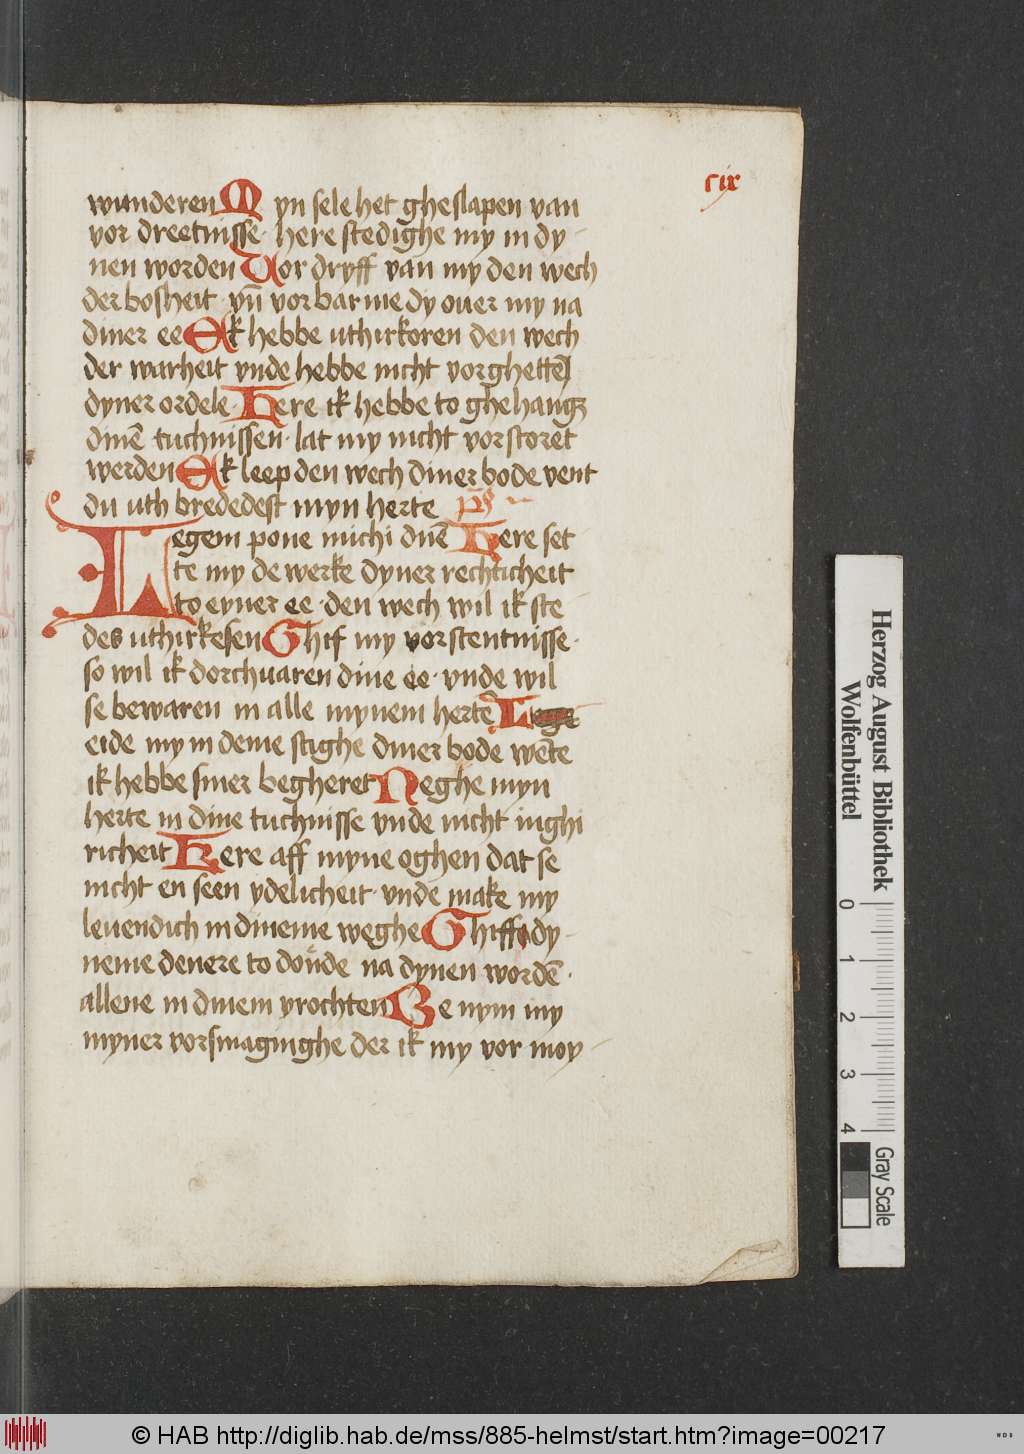 cix
wunderen Myn sele het gheslapen van
vor dreetnisse · here stedighe my in dy
nen worden Vor dryff van my den wech
der bosheit yn̄ vorbarme dy ouer my na
diner ee Ik hebbe uthirkoren den wech
der warheit vnde hebbe nicht vorghettē
dyner ordele · Here ik hebbe to ghehangē
dinē tuchnissen · lat my nicht vorstoret
werden Ik leep den wech diner bode vent
du uth brededest myn herte ps̄
Legem pone michi dn̄e Here set
te my de werke dyner rechticheit
to eyner ee · den wech wil ik ste
des uthirkesen Ghif my vorstentnisse ·
so wil ik dorchuaren dine ee · vnde wil
se bewaren in alle mynem hertē L
eide my in deme stighe diner bode wēte
ik hebbe siner begheret Neghe myn
herte in dine tuchnisse vnde nicht in ghi
richeit Kere aff myne oghen dat se
nicht en seen ydelicheit · vnde make my
leuendich in dineme weghe Ghiff dy
neme denere to donde na dynen wordē ·
allene in dinem vrochten Be nym my
myner vorsmaginghe der ik my vor moy
Herzog August Bibliothek
Wolfenbüttel
0 1 2 3 4
Gray Scale
© HAB http://diglib.hab.de/mss/885-helmst/start.htm?image=00217